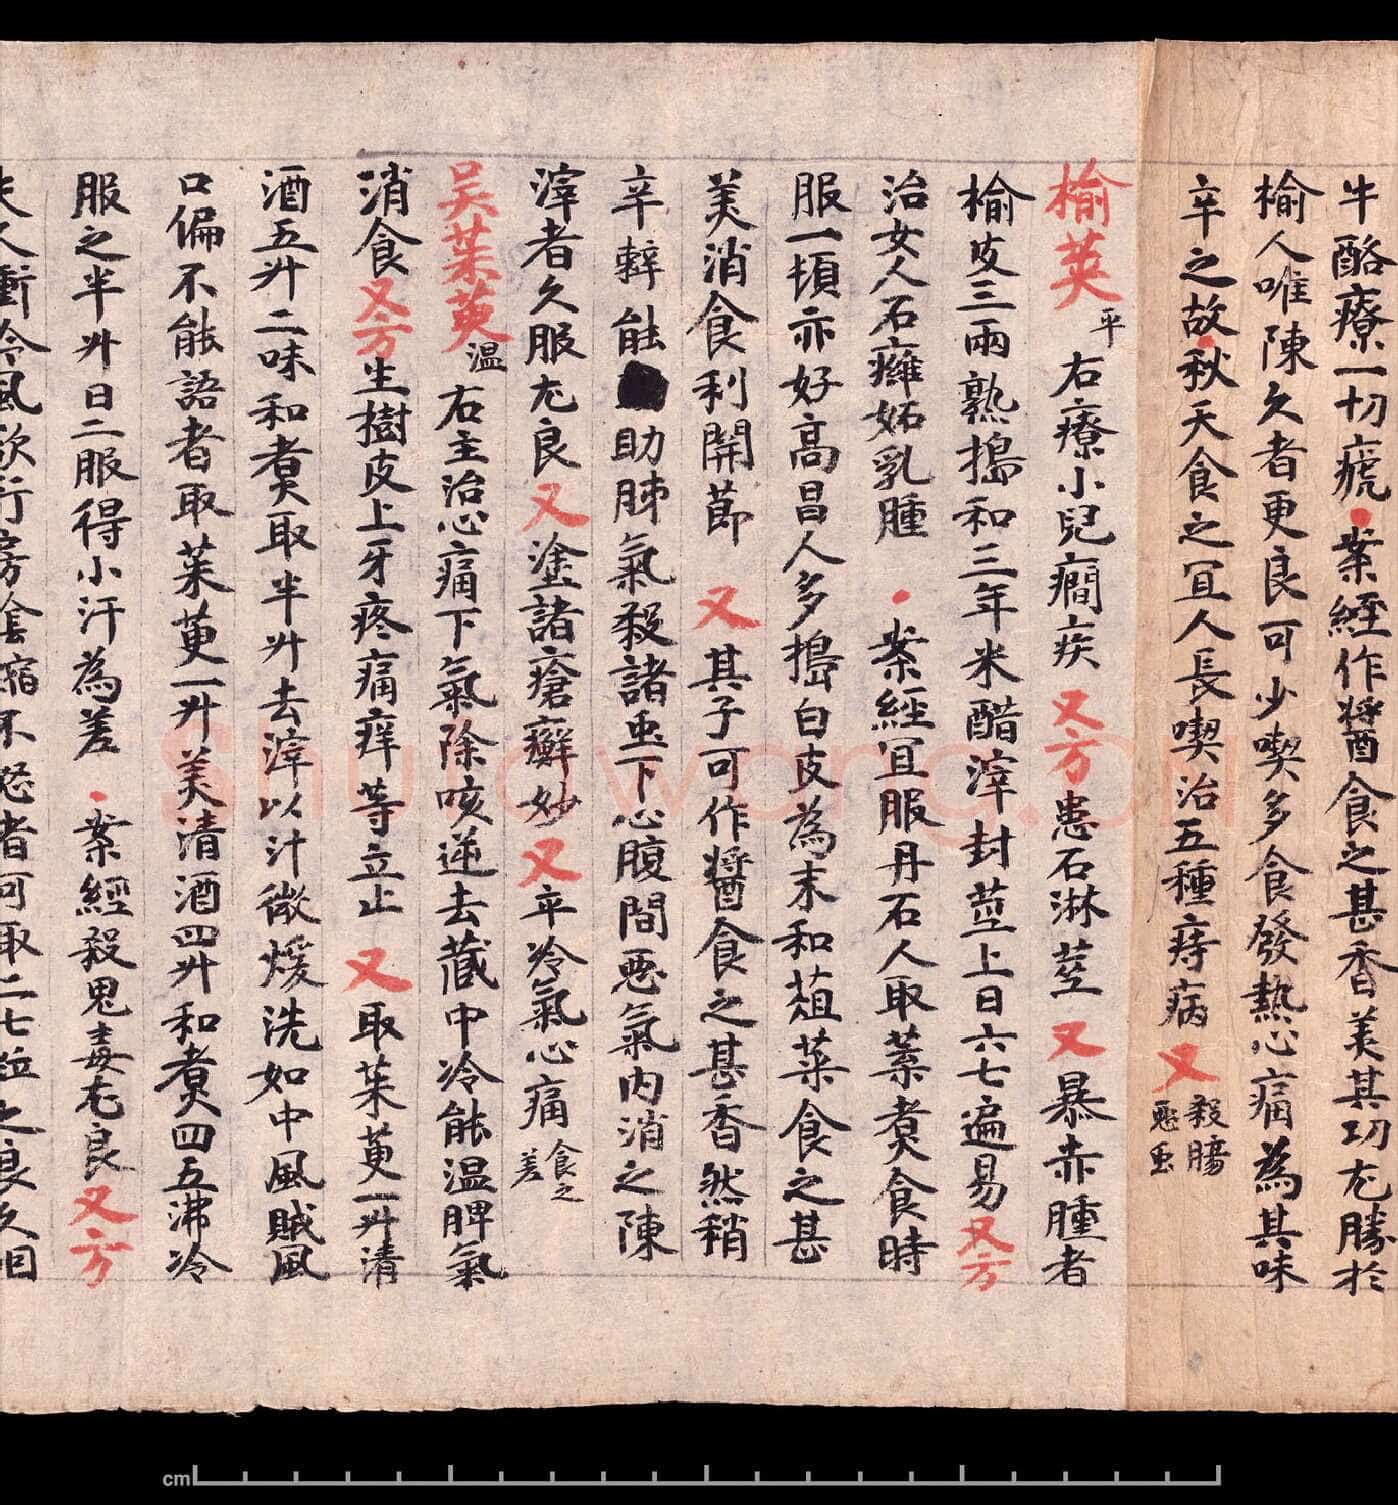 牛酪療一切瘡案經作醬食之甚香美其功尤勝於
榆人唯陳久者更良可少喫多食發熱心痛為其味
辛之故秋天食之冝人長喫治五種痔病又殺腸惡虫
榆莢平右療小兒癇疾又方患石淋莖又暴赤腫者
榆皮三兩熟搗和三年米醋滓封莖上日六七遍易又方
治女人石癰妬乳腫案經冝服丹石人取葉煮食時
服一頓亦好高昌人多搗白皮為末和葅菜食之甚
美消食利關節又其子可作醬食之甚香然稍
辛辣能助肺氣殺諸虫下心腹間惡氣內消之陳
滓者久服尤良又塗諸瘡癬妙又卒冷氣心痛食之差
吴茱萸温右主治心痛下氣除咳逆去藏中冷能温脾氣
消食又方生樹皮上牙疼痛痒等立止又取茱萸一升清
酒五升二味和煑取半升去滓以汁微煖洗如中風賊風
口偏不能語者取茱萸一升美清酒四升和煑四五沸冷
服之半升日二服得小汗為差案經殺鬼毒尤良又方
夫人衝冷風欲行房陰縮不怒者可取二七粒之良久咽
cm